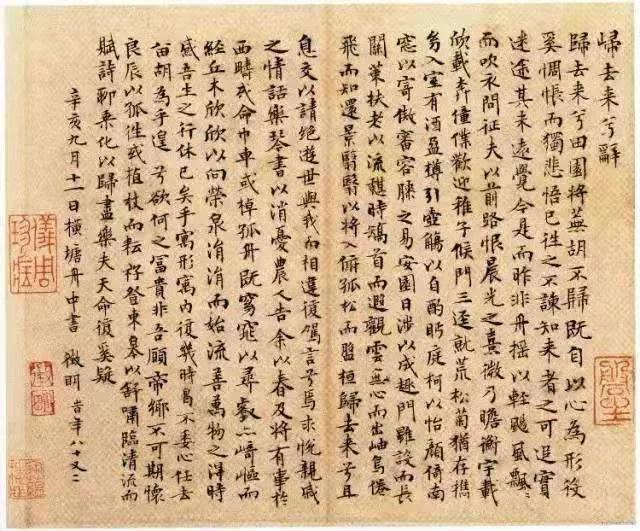 歸去来兮辭
歸去来兮田園将蕪胡不歸既自以心為形役
奚惆悵而獨悲悟已往之不諫知来者之可追實
迷途其未遠覺今是而昨非舟摇以輕颺風飄〻
而吹衣問征夫以前路恨晨光之熹微乃瞻衡宇載
欣載奔僮僕歡迎稚子候門三逕就荒松菊猶存携
幼入室有酒盈樽引壺觴以自酌眄庭柯以怡顔倚南
窓以寄傲審容膝之易安園日涉以成趣門雖設而長
關策扶老以流憩時矯首而遐觀雲無心而出岫鳥倦
飛而知還景翳翳以将入撫孤松而盤桓歸去来兮且
息交以請絶遊世與我而相違復駕言兮焉求悦親戚
之情話樂琴書以消憂農人告余以春及将有事於
西疇或命巾車或棹孤舟既窈窕以尋壑亦崎嶇而
經丘木欣欣以向榮泉涓涓而始流善萬物之得時
感吾生之行休已矣乎寓形寓内復幾時曷不委心任去
留胡為乎遑〻兮欲何之富貴非吾願帝鄉不可期懷
良辰以孤往或植杖而耘耔登東皋以舒嘯臨清流而
賦詩聊乘化以歸盡樂夫天命復奚疑
辛亥九月十一日橫塘舟中書 徵明 時年八十又二